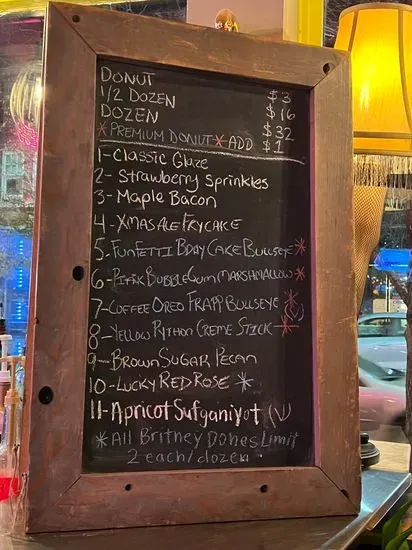 DONUT $3
1/2 DOZEN $16
DOZEN $32
*PREMIUM DONUT* ADD $1
1-Classic Glaze
2-Strawberry Sprinkles
3-Maple Bacon
4-XMAS ALE FRYCAKE
5-FUNFETTI BDAY CAKE BULLSEYE *
6-PINK BUBBLEGUM MARSHMALLOW *
7-COFFEE OREO FRAPP BULLSEYE *
8-YELLOW PYTHON CREME STICK (V) *
9-BROWN SUGAR PECAN
10-LUCKY RED ROSE *
11-Apricot Sufganiyot (V)
*All Britney Dones Limit
2 each/dozen